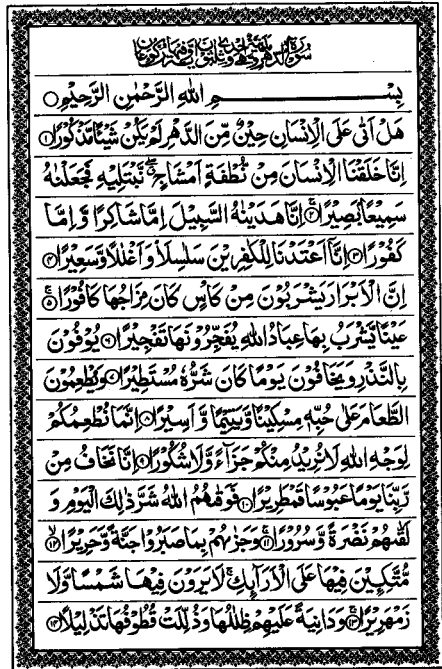 بِسْمِ اللهِ الرَّحْمٰنِ الرَّحِيْمِ ○
هَلْ اَتٰى عَلَى الْاِنْسَانِ حِيْنٌ مِّنَ الدَّهْرِ لَمْ يَكُنْ شَيْئًا مَّذْكُوْرًا ①
اِنَّا خَلَقْنَا الْاِنْسَانَ مِنْ نُّطْفَةٍ اَمْشَاجٍ ۖ نَّبْتَلِيْهِ فَجَعَلْنٰهُ
سَمِيْعًا بَصِيْرًا ② اِنَّا هَدَيْنٰهُ السَّبِيْلَ اِمَّا شَاكِرًا وَّ اِمَّا
كَفُوْرًا ③ اِنَّا اَعْتَدْنَا لِلْكٰفِرِيْنَ سَلٰسِلَا۟ وَ اَغْلٰلًا وَّ سَعِيْرًا ④
اِنَّ الْاَبْرَارَ يَشْرَبُوْنَ مِنْ كَاْسٍ كَانَ مِزَاجُهَا كَافُوْرًا ⑤
عَيْنًا يَّشْرَبُ بِهَا عِبَادُ اللهِ يُفَجِّرُوْنَهَا تَفْجِيْرًا ⑥ يُوْفُوْنَ
بِالنَّذْرِ وَ يَخَافُوْنَ يَوْمًا كَانَ شَرُّهٗ مُسْتَطِيْرًا ⑦ وَ يُطْعِمُوْنَ
الطَّعَامَ عَلٰى حُبِّهٖ مِسْكِيْنًا وَّ يَتِيْمًا وَّ اَسِيْرًا ⑧ اِنَّمَا نُطْعِمُكُمْ
لِوَجْهِ اللهِ لَا نُرِيْدُ مِنْكُمْ جَزَآءً وَّ لَا شُكُوْرًا ⑨ اِنَّا نَخَافُ مِنْ
رَّبِّنَا يَوْمًا عَبُوْسًا قَمْطَرِيْرًا ⑩ فَوَقٰىهُمُ اللهُ شَرَّ ذٰلِكَ الْيَوْمِ وَ
لَقّٰىهُمْ نَضْرَةً وَّ سُرُوْرًا ⑪ وَ جَزٰىهُمْ بِمَا صَبَرُوْا جَنَّةً وَّ حَرِيْرًا ⑫
مُّتَّكِـِٕيْنَ فِيْهَا عَلَى الْاَرَآىِٕكِ ۚ لَا يَرَوْنَ فِيْهَا شَمْسًا وَّ لَا
زَمْهَرِيْرًا ⑬ وَ دَانِيَةً عَلَيْهِمْ ظِلٰلُهَا وَ ذُلِّلَتْ قُطُوْفُهَا تَذْلِيْلًا ⑭